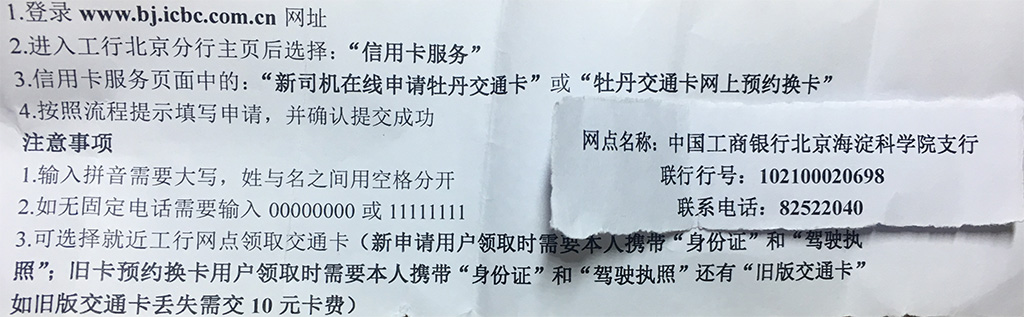 1.登录 www.bj.icbc.com.cn 网址
2.进入工行北京分行主页后选择：“信用卡服务”
3.信用卡服务页面中的：“新司机在线申请牡丹交通卡”或“牡丹交通卡网上预约换卡”
4.按照流程提示填写申请，并确认提交成功
注意事项
1.输入拼音需要大写，姓与名之间用空格分开
2.如无固定电话需要输入 00000000 或 11111111
3.可选择就近工行网点领取交通卡（新申请用户领取时需要本人携带“身份证”和“驾驶执
照”；旧卡预约换卡用户领取时需要本人携带“身份证”和“驾驶执照”还有“旧版交通卡”
如旧版交通卡丢失需交 10 元卡费）
网点名称：中国工商银行北京海淀科学院支行
联行行号：102100020698
联系电话：82522040